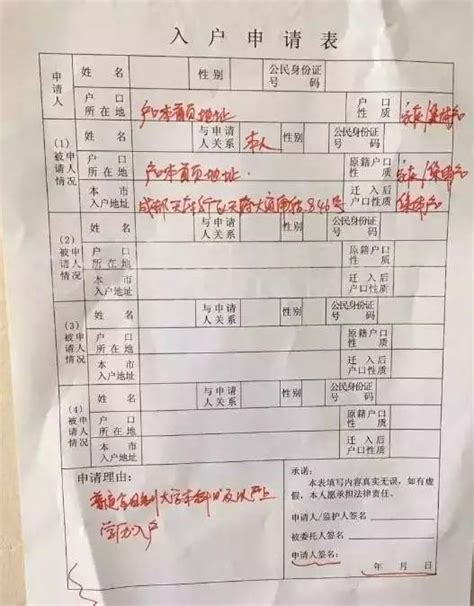 入户申请表
申请人 姓名 性别 公民身份证号码
户口所在地 户口本首页地址 户口性质 家庭/集体户
(1)被申请人情况 姓名 与申请人关系 本人 性别 公民身份证号码
户口所在地 户口本首页地址 原籍户口性质 家庭/集体户
本市入户地址 成都天府 天府大道南段846号 迁入后户口性质 集体户
(2)被申请人情况 姓名 与申请人关系 性别 公民身份证号码
户口所在地 原籍户口性质
本市入户地址 迁入后户口性质
(3)被申请人情况 姓名 与申请人关系 性别 公民身份证号码
户口所在地 原籍户口性质
本市入户地址 迁入后户口性质
(4)被申请人情况 姓名 与申请人关系 性别 公民身份证号码
户口所在地 原籍户口性质
本市入户地址 迁入后户口性质
申请理由:
普通全日制大学本科及以上
学历入户
承诺:
本表填写内容真实无误,如有虚
假,本人愿承担法律责任。
申请人/监护人签名:
被委托人签名:
申请人签名:
年 月 日